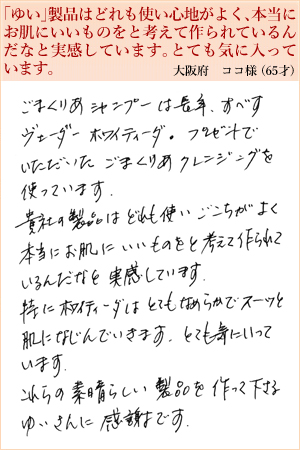 「ゆい」製品はどれも使い心地がよく、本当に
お肌にいいものをと考えて作られているん
だなと実感しています。とても気に入って
います。
大阪府 ココ様（65才）
ごまくりあ シャンプーは長年、すべす
ヴェーダー ホワイティーダ。プレゼントで
いただいた ごまくりあ クレンジングを
使っています。
貴社の製品は どれも使い ごこちがよく
本当にお肌に いいものをと考えて作られて
いるんだなと 実感しています。
特にホワイティーダは とてもなめらかでスーッと
肌になじんでいきます。とても気にいって
います。
これらの素晴らしい 製品を 作って下さる
ゆいさんに 感謝です。